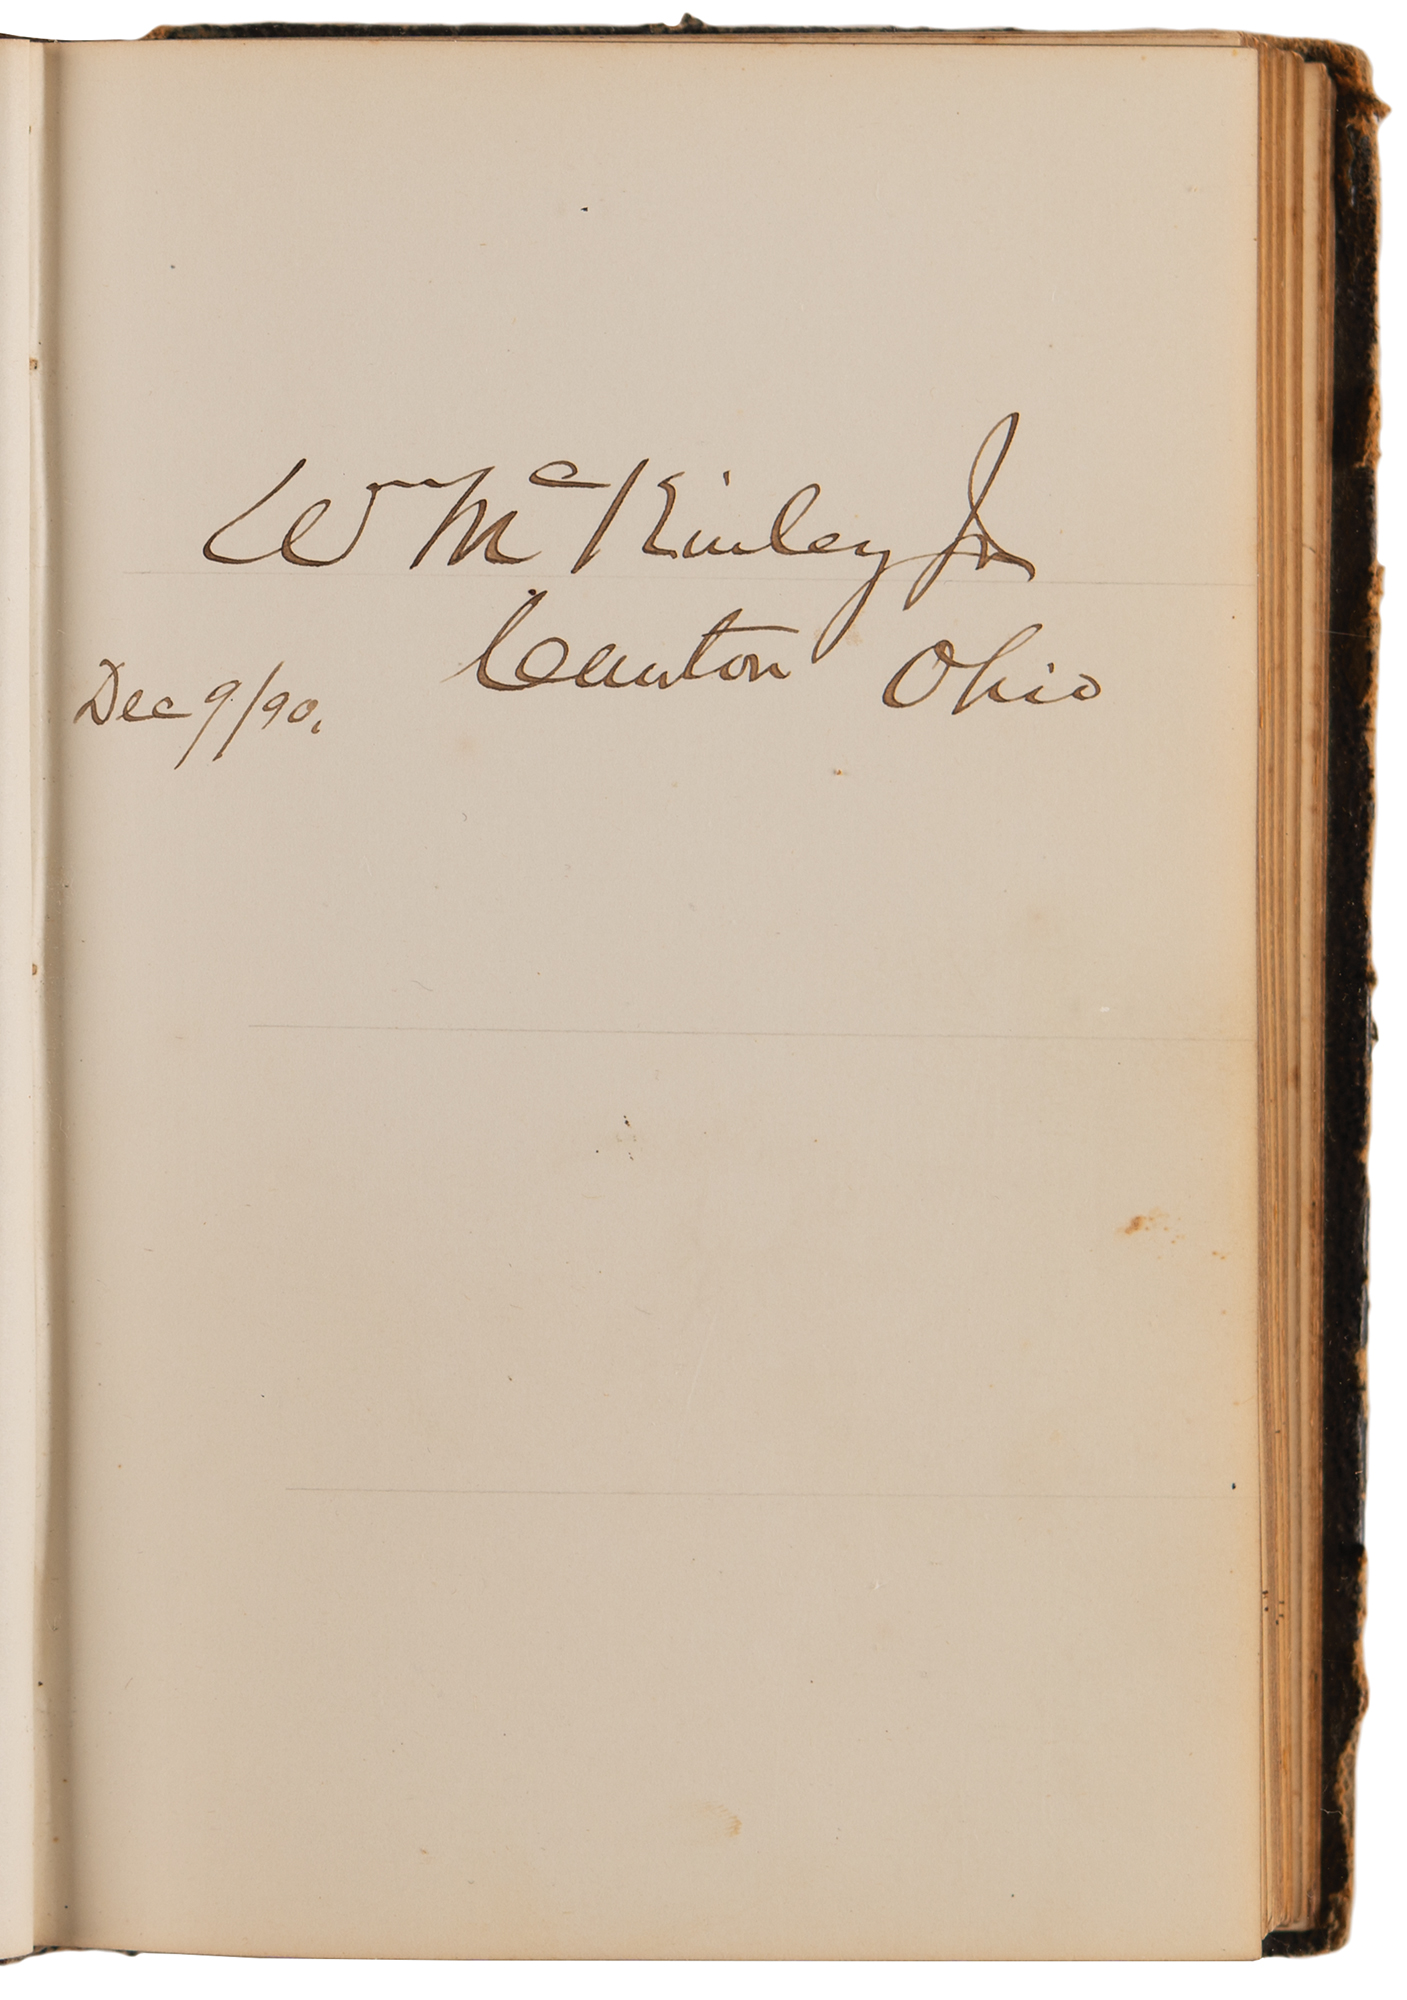 Wm McKinley Jr
Canton Ohio
Dec 9/90.